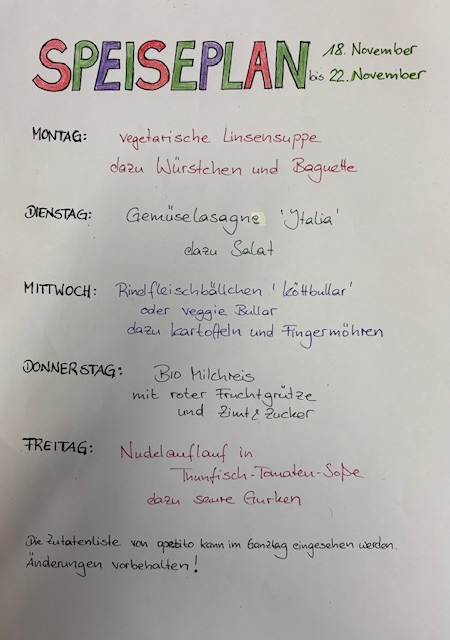 SPEISEPLAN 18. November
bis 22. November
MONTAG: vegetarische Linsensuppe
dazu Würstchen und Baguette
DIENSTAG: Gemüselasagne 'Italia'
dazu Salat
MITTWOCH: Rindfleischbällchen 'Köttbullar'
oder veggie Bullar
dazu Kartoffeln und Fingermöhren
DONNERSTAG: BIO Milchreis
mit roter Fruchtgrütze
und Zimt & Zucker
FREITAG: Nudelauflauf in
Thunfisch-Tomaten-Soße
dazu saure Gurken
Die Zutatenliste von apetito kann im Ganztag eingesehen werden.
Änderungen vorbehalten!